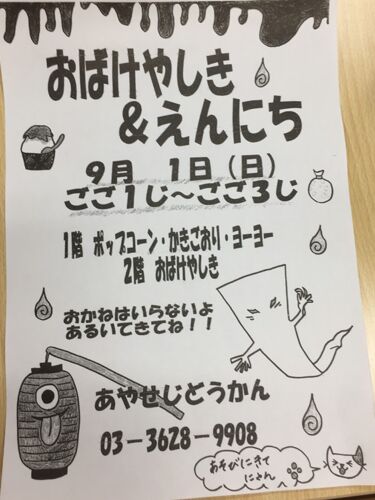 おばけやしき
&えんにち
9月 1日(日)
ごご1じ~ごご3じ
1階 ポップコーン・かきごおり・ヨーヨー
2階 おばけやしき
おかねはいらないよ
あるいてきてね!!
あやせじどうかん
03-3628-9908
あそびにきて
にゃん